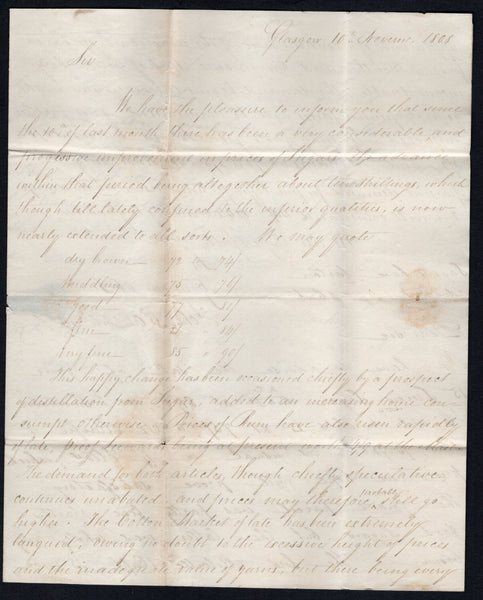 Glasgow 10th Novemr. 1808
Sir
We have the pleasure to inform you that since
the 10th of last month there has been a very considerable and
progressive improvement in prices of Sugar. The advance
within that period being altogether about ten shillings, which
though till lately confined to the inferior qualities, is now
nearly extended to all sorts. We may quote
dry brown 72 to 74/
Middling 75 " 76/
Good 77 81/
fine 84/
very fine 85 " 90/
This happy change has been occasioned chiefly by a prospect
of distillation from Sugar, added to an increasing home con
sumpt otherwise. Prices of Rum have also risen rapidly
of late, proof Jamaica being at present worth
The demand for both articles, though chiefly speculative
continues unabated and prices may therefore probably still go
higher. The Cotton Market of late has been extremely
languid, owing no doubt to the excessive height of prices
and the inadequate value of yarns, but there being every